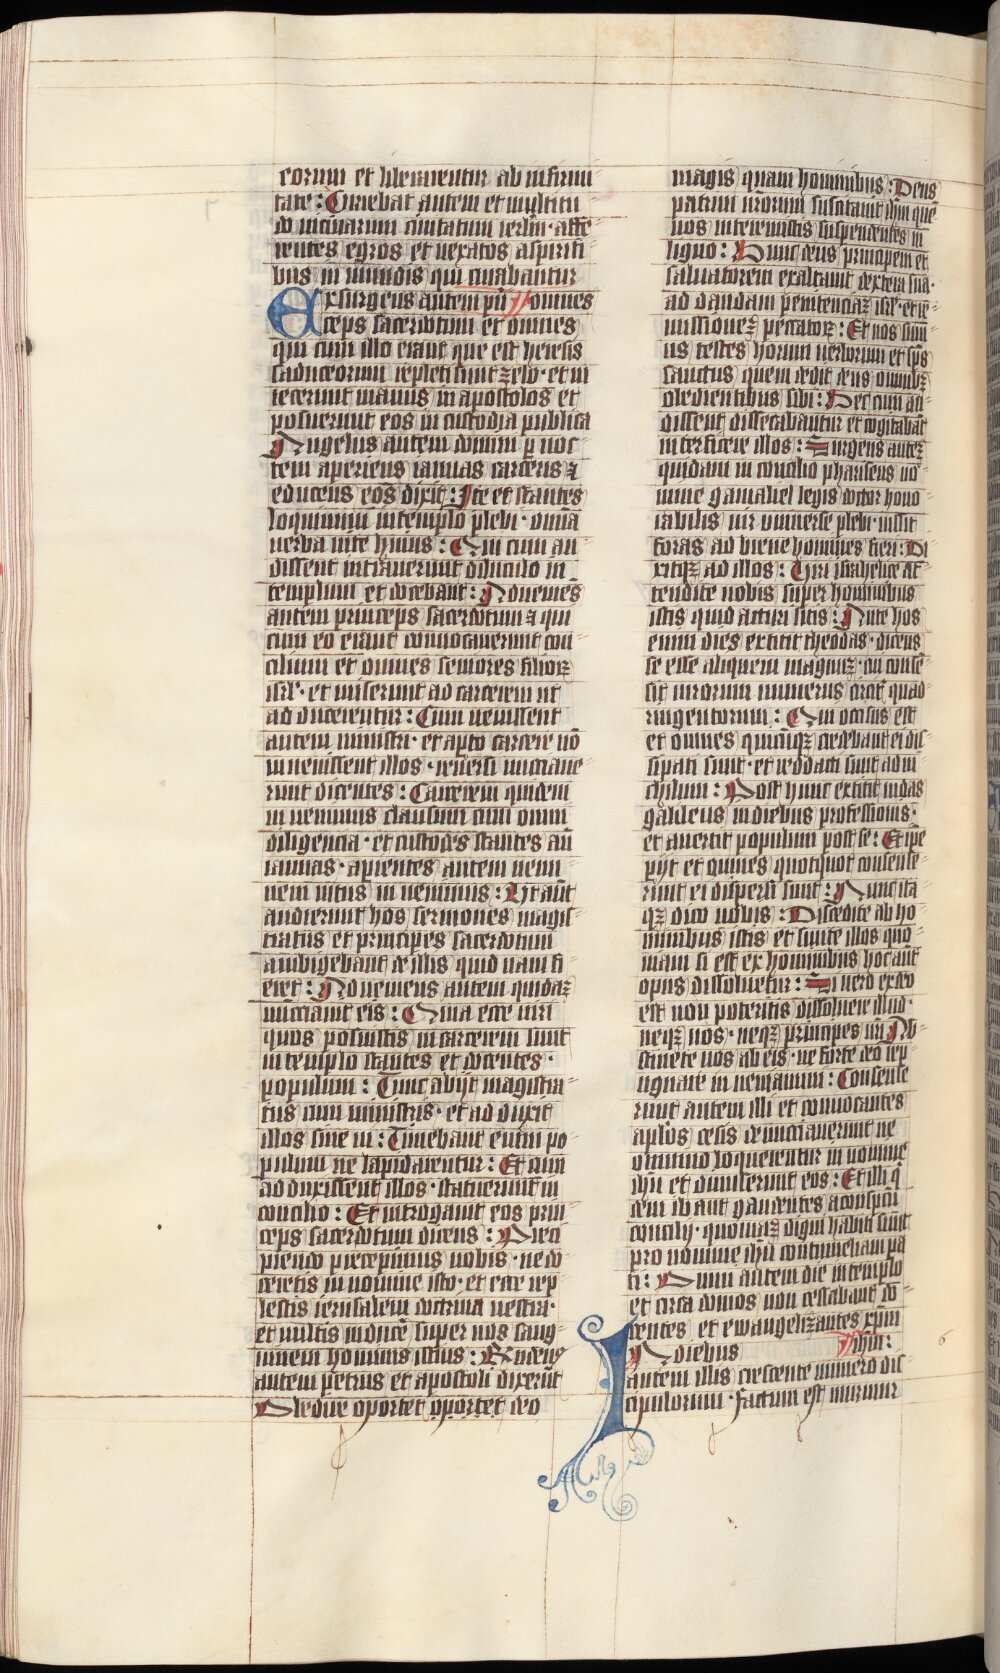 eorum et liberarentur ab infirmi
tate: Currebat autem et multitu
do vicinarum civitatum ierlm· affe
rentes egros et vexatos a spiriti
bus in mundis qui curabantur
Exsurgens autem pn̄ // omnes
ceps sacerdotum et omnes
qui cum illo erant que est heresis
saduceorum repleti sunt zelo· et in
iecerunt manus in apostolos et
posuerunt eos in custodia publica
Angelus autem domini p noc
tem aperiens ianuas carceris ⁊
educens eos dixit: Ite et stantes
loquimini in templo plebi· omīa
verba vite huius: Qui cum au
dissent intraverunt diluculo in
templum et docebant: Adveniēs
autem princeps sacerdotum ⁊ qui
cum eo erant convocaverunt con
cilium et omnes seniores filioꝝ
isrl̄· et miserunt ad carcerem ut
ad ducerentur: Cum venissent
autem ministri· et apto carcere nō
in venissent illos· reversi nunciave
runt dicentes: Carcerem quidem
in venimus clausum cum omni
diligencia· et custodes stantes an̄
ianuas· aperientes autem nemi
nem intus in venimus: Ut aūt
audierunt hos sermones magis
tratus et principes sacerdotum
ambigebant de illis quid nam fi
eret: Adveniens autem quidaꝫ
nunciavit eis: Quia ecce viri
quos posuistis in carcerem sunt
in templo stantes et docentes·
populum: Tunc abijt magistra
tus cum ministris· et ad duxit
illos sine vi: Timebant enim po
pulum ne lapidarentur: Et cum
ad duxissent illos· statuerunt in
concilio: Et introgavit eos prin
ceps sacerdotum dicens: Preci
piendo precepimus vobis· ne do
ceretis in nomine isto· et ecce rep
lestis ierusalem doctrina vestra·
et vultis inducē super nos sang
uinem hominis istius: Rn̄dens
autem petrus et apostoli dixerūt
Obedire oportet oportet deo
magis quam hominibus: Deus
patrum nrōrum suscitavit ihm quē
vos interemistis suspendentes in
ligno: Hunc deus principem et
salvatorem exaltavit dextera sua·
ad dandam penitenciaꝫ isrl̄· et re
missioneꝫ peccatoꝝ: Et nos sum
us testes horum verborum et sp̄s
sanctus quem dedit deus omnibꝫ
obedientibus sibi: Hec cum au
dissent dissecabantur et cogitabāt
interficere illos: Surgens auteꝫ
quidam in concilio phariseus no
mine gamaliel legis doctor hono
rabilis vir universe plebi· iussit
foras ad breve homines fieri: Di
xitqꝫ ad illos: Viri israhelite at
tendite vobis super hominibus
istis quid acturi sitis: Ante hos
enim dies extitit theodas· dicens
se esse aliquem magnuꝫ· cui conse
sit virorum numerus circit̄ quad
ringentorum: Qui occisus est
et omnes quicūqꝫ credebant ei dis
sipati sunt· et reddacti sunt ad ni
chilum: Post hunc extitit iudas
galileus in diebus professionis·
et avertit populum post se: Et ipe
pijt et omnes quotquot consense
runt ei dispersi sunt: Nunc ita
qꝫ dico vobis: Discedite ab ho
minibus istis et sinite illos quo
niam si est ex hominibus hoc aūt
opus dissolvetur: Si vero ex deo
est non poteritis dissolvere illud·
neqꝫ vos· neqꝫ principes vri̅ Ab
stinete vos ab eis· ne forte deo rep
ugnare in veniamini: Consense
runt autem illi et convocantes
aplos cesis denunciaverunt ne
omnino loquerentur in nomine
ihu et dimiserunt eos: Et illi q̄
dem ibant gaudentes a conspcu
concilij· quoniaꝫ digni habiti sunt
pro nomine ihu contumeliam pa
ti: Omni autem die in templo
et circa domos non cessabant do
centes et ewangelizantes xpm
In diebus // ihm:
autem illis crescente numero dis
cipulorum· factum est murmur